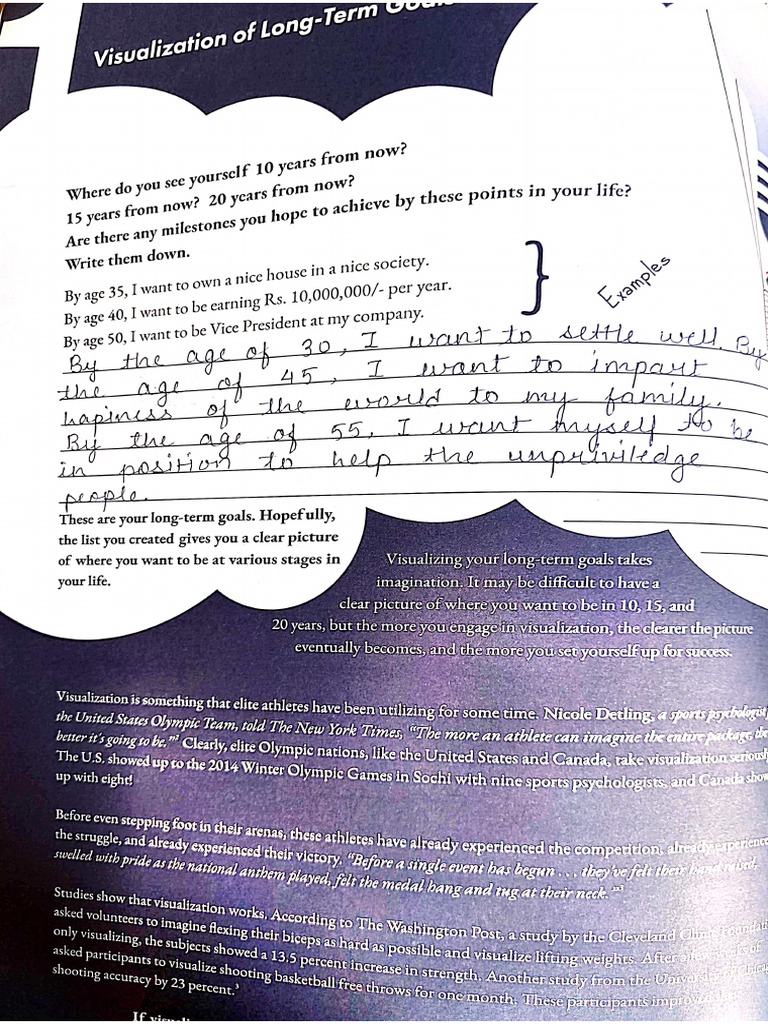 Visualization of Long-Term Goals
Where do you see yourself 10 years from now?
15 years from now? 20 years from now?
Are there any milestones you hope to achieve by these points in your life?
Write them down.
By age 35, I want to own a nice house in a nice society.
By age 40, I want to be earning Rs. 10,000,000/- per year.
By age 50, I want to be Vice President at my company.
} Examples
By the age of 30, I want to settle well. By
the age of 45, I want to impart
hapiness of the world to my family.
By the age of 55, I want myself to be
in position to help the unpriviledge
people.
These are your long-term goals. Hopefully,
the list you created gives you a clear picture
of where you want to be at various stages in
your life.
Visualizing your long-term goals takes
imagination. It may be difficult to have a
clear picture of where you want to be in 10, 15, and
20 years, but the more you engage in visualization, the clearer the picture
eventually becomes, and the more you set yourself up for success.
Visualization is something that elite athletes have been utilizing for some time. Nicole Detling, a sports psychologist
the United States Olympic Team, told The New York Times, "The more an athlete can imagine the entire package, the
better it's going to be."² Clearly, elite Olympic nations, like the United States and Canada, take visualization seriously
The U.S. showed up to the 2014 Winter Olympic Games in Sochi with nine sports psychologists, and Canada show
up with eight!
Before even stepping foot in their arenas, these athletes have already experienced the competition, already experience
the struggle, and already experienced their victory. "Before a single event has begun . . . they've felt their hand raised,
swelled with pride as the national anthem played, felt the medal hang and tug at their neck."³
Studies show that visualization works. According to The Washington Post, a study by the Cleveland Clinic Foundati
asked volunteers to imagine flexing their biceps as hard as possible and visualize lifting weights. After a few of
only visualizing, the subjects showed a 13.5 percent increase in strength. Another study from the University of Chicag
asked participants to visualize shooting basketball free throws for one month. These participants improv
shooting accuracy by 23 percent.³
If